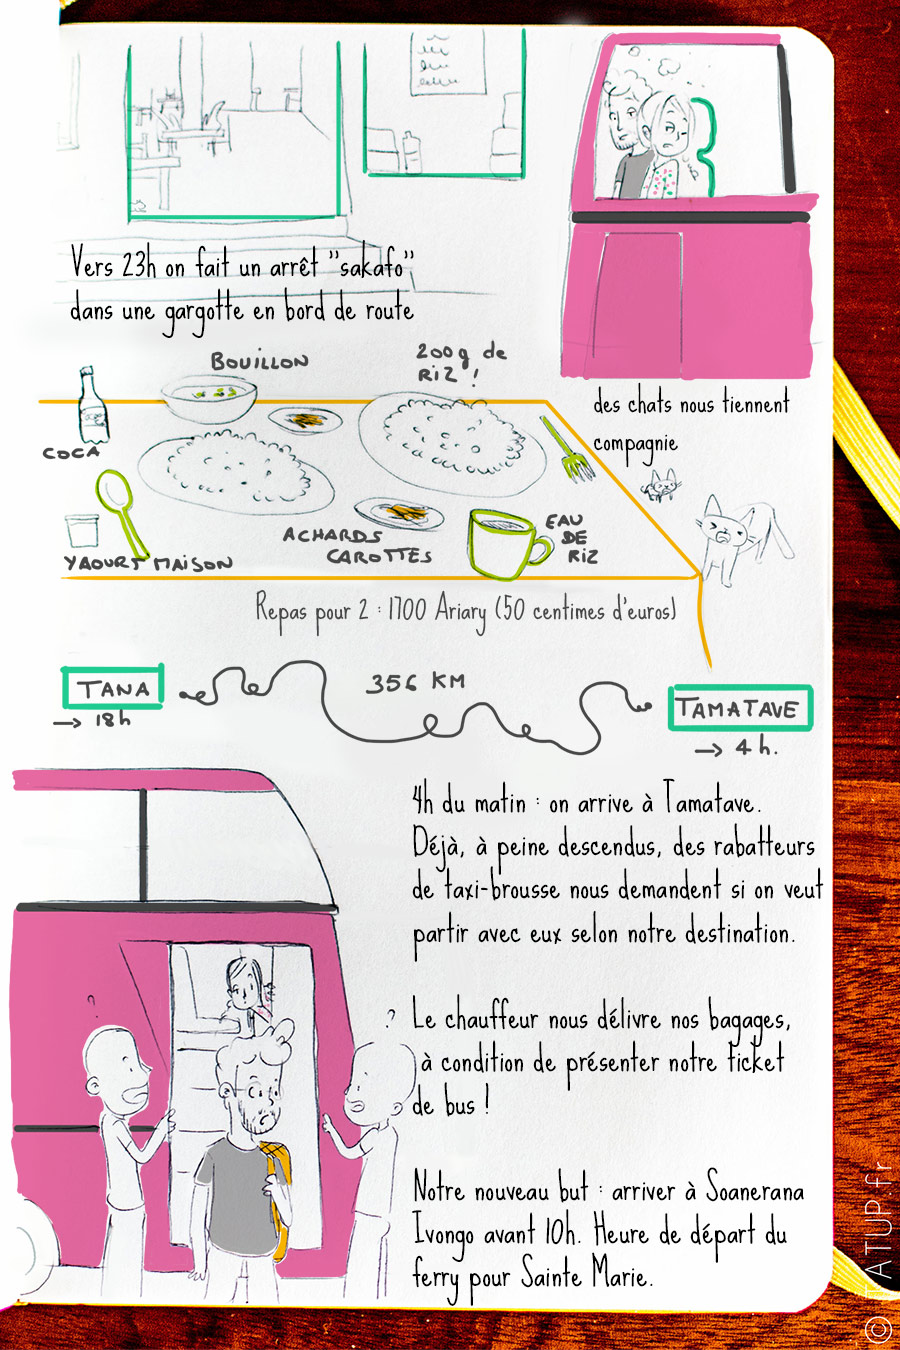 Vers 23h on fait un arrêt "sakafo"
dans une gargotte en bord de route
BOUILLON
200g de
RIZ !
COCA
YAOURT MAISON
ACHARDS
CAROTTES
EAU
DE
RIZ
des chats nous tiennent
compagnie
Repas pour 2 : 1700 Ariary (50 centimes d'euros)
TANA
→ 18h
356 KM
TAMATAVE
→ 4h.
4h du matin : on arrive à Tamatave.
Déjà, à peine descendus, des rabatteurs
de taxi-brousse nous demandent si on veut
partir avec eux selon notre destination.
?
?
Le chauffeur nous délivre nos bagages,
à condition de présenter notre ticket
de bus !
Notre nouveau but : arriver à Soanerana
Ivongo avant 10h. Heure de départ du
ferry pour Sainte Marie.